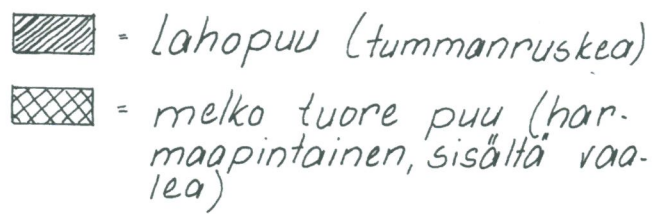 = lahopuu (tummanruskea)
= melko tuore puu (har-
maapintainen, sisältä vaa-
lea)